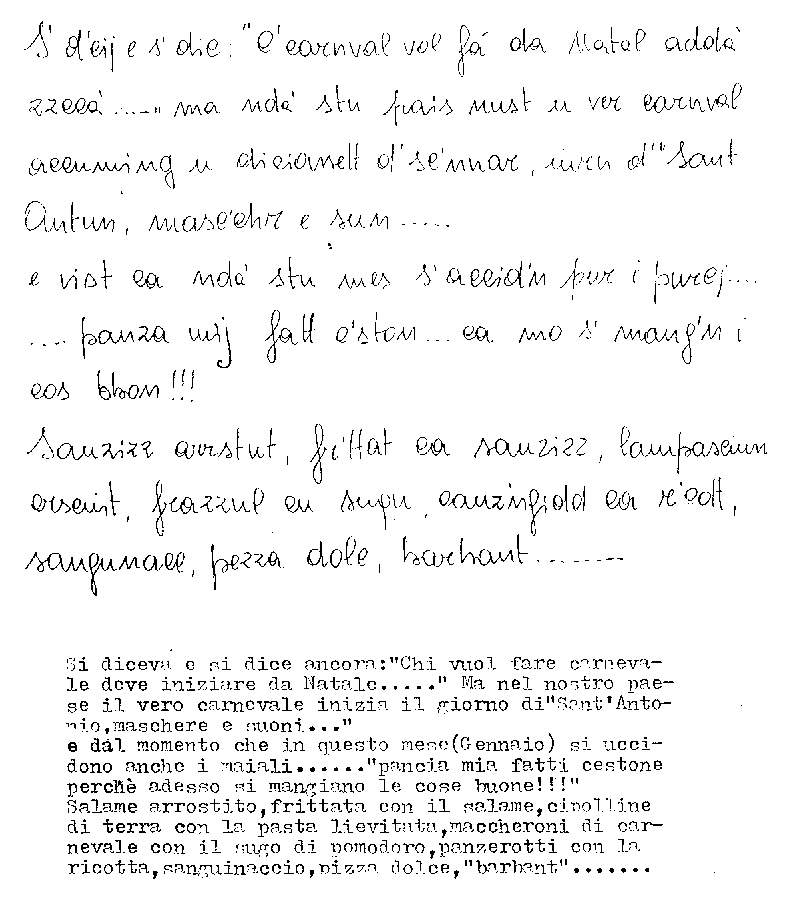 S' d'cij e s' dic: "C' carnval vol fá da Natal addà
zzccà ....." ma ndà stu pais nust u ver carnval
accuming u diciannett d' se'nnar, iurn d' "Sant
Antun, masc'chr e sun .....
e vist ca ndà stu mes s' accid'n pur i purcj ....
.... panza mij fatt c'ston ... ca mo s' mang'n i
cos bbon!!!
Sauzizz arrstut, fr'ttat ca sauzizz, lampasciun
arscnt, frazzul cu sugu, cauz'ngidd ca r'cott,
sangunacc, pezza dolc, barbant ........
Si diceva e si dice ancora:"Chi vuol fare carneva-
le deve iniziare da Natale....." Ma nel nostro pae-
se il vero carnevale inizia il giorno di"Sant'Anto-
nio,maschere e suoni..."
e dal momento che in questo mese(Gennaio) si ucci-
dono anche i maiali......"pancia mia fatti cestone
perchè adesso si mangiano le cose buone!!!"
Salame arrostito,frittata con il salame,cipolline
di terra con la pasta lievitata,maccheroni di car-
nevale con il sugo di pomodoro,panzerotti con la
ricotta,sanguinaccio,pizza dolce,"barbant".......